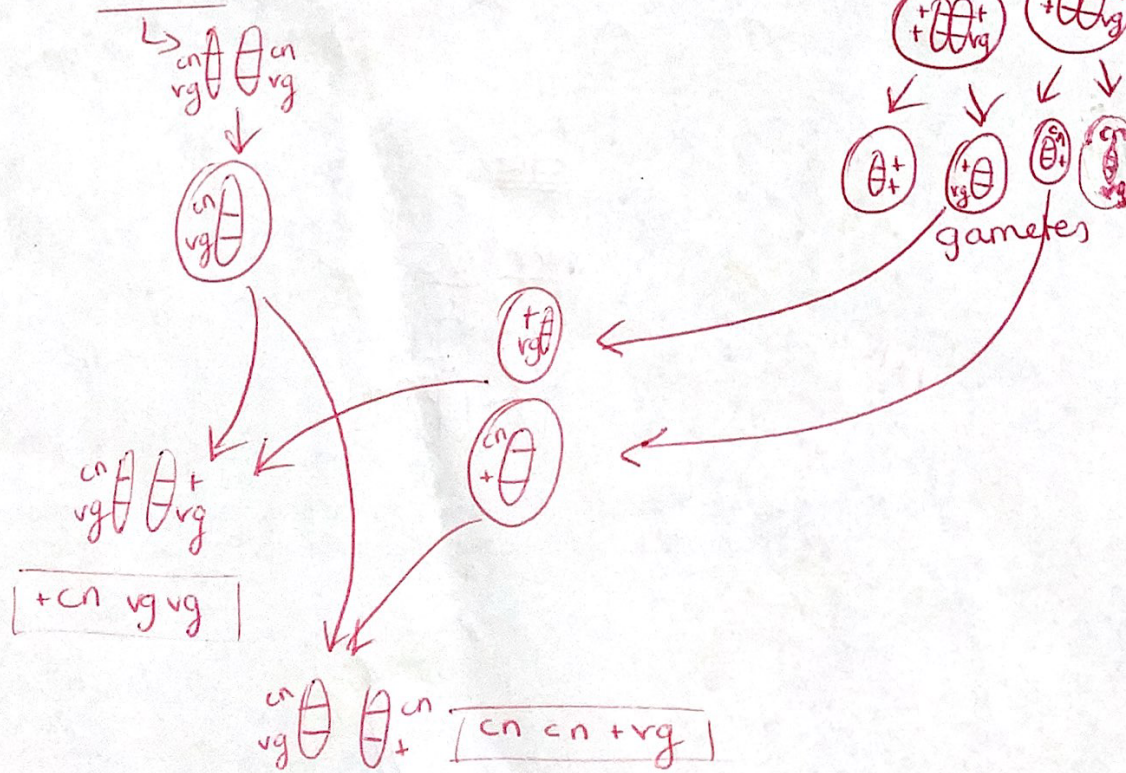 + + + vg
+ vg
cn cn
vg vg
cn
vg
+
+
+
vg
cn
+
cn
vg
gametes
+
vg
cn
+
cn +
vg vg
+cn vg vg
cn cn
vg +
cn cn +vg